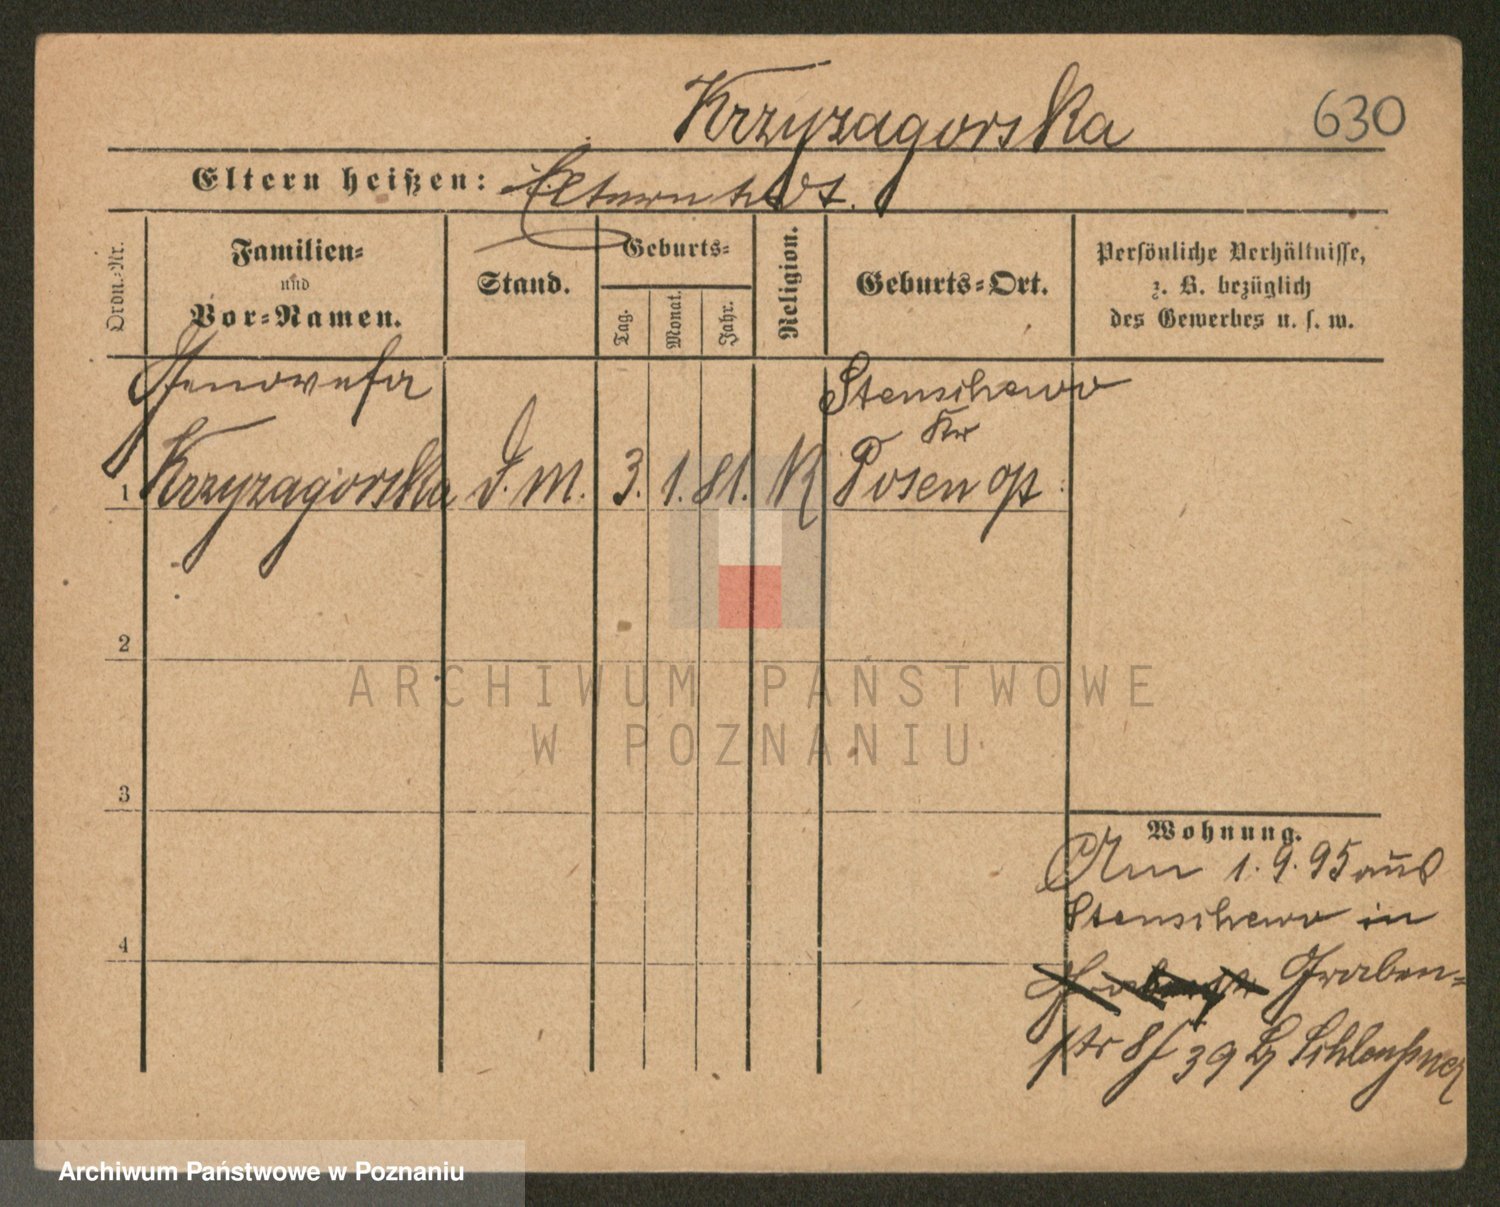 Krzyzagorska
630
Eltern heißen: Eltern tot.
Ordn.-Nr.
Familien-
und
Vor-Namen.
Stand.
Geburts-
Tag.
Monat.
Jahr.
Religion.
Geburts-Ort.
Persönliche Verhältnisse,
z. B. bezüglich
des Gewerbes u. s. w.
Genovefa
Stenschewo
Kr
1 Krzyzagorska D. M. 3. 1. 81. K Posen
2
ARCHIWUM PAŃSTWOWE
W POZNANIU
3
Wohnung.
Am 1.9.95 aus
Stenschewo in
4
Graben-
str 8/39 b/
Archiwum Państwowe w Poznaniu